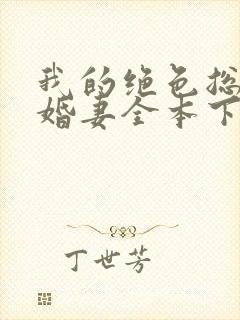 我的绝色总
婚妻全本下
丁世芳